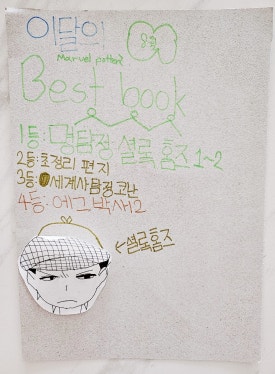 이달의 8월
Marvel potter?
Best book
1등: 명탐정 셜록 홈즈 1~2
2등: 초정리 편지
3등: 세계사 탐정 코난
4등: 에그 박사 2
←셜록홈즈